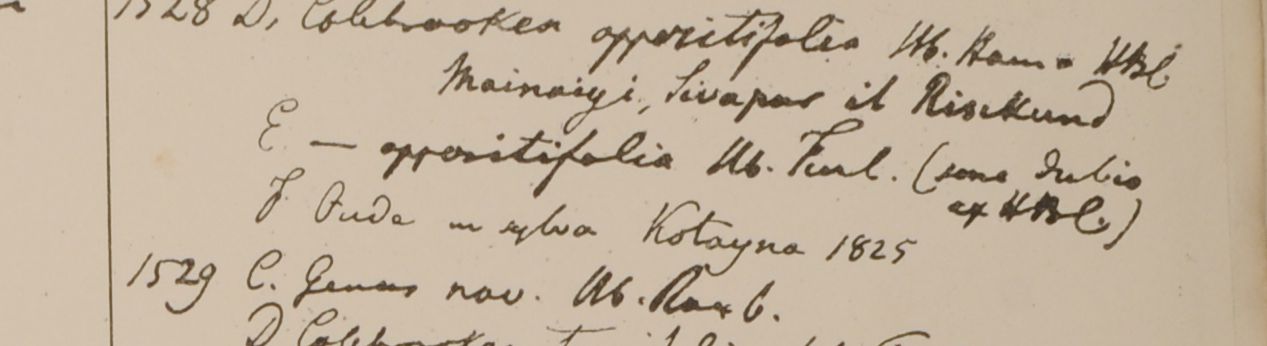 1528 D, Colebrookea oppositifolia Hb. Ham. HBC.
Mainaigi, Sivapur et Risikund
E — oppositifolia Hb. Finl. (sine dubio
ex HBC.)
F Oude in sylva Kotayna 1825
1529 C. Genus nov. Hb. Roxb.
D Colebrookea